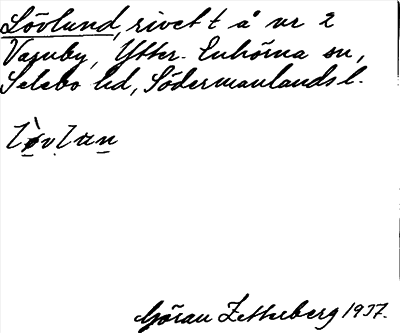 Lövlund, rivet t å nr 2
Varnby, Ytter-Enhörna sn,
Selebo hd, Södermanlands l.
Göran Zetterberg 1937.